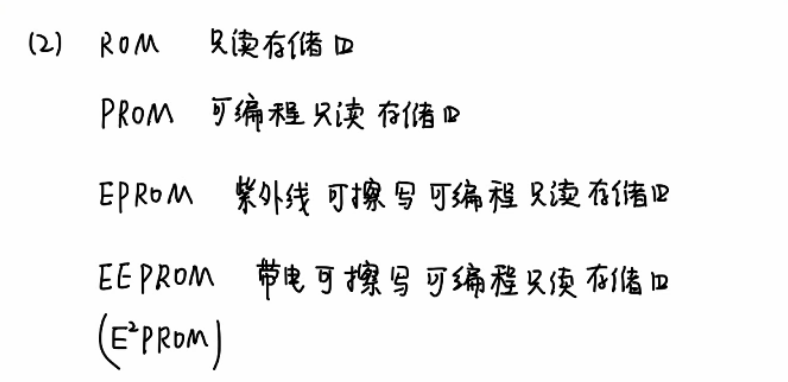 (2) ROM 只读存储四
PROM 可编程只读存储四
EPROM 紫外线可擦写可编程只读存储四
EEPROM 带电可擦写可编程只读存储四
(E²PROM)